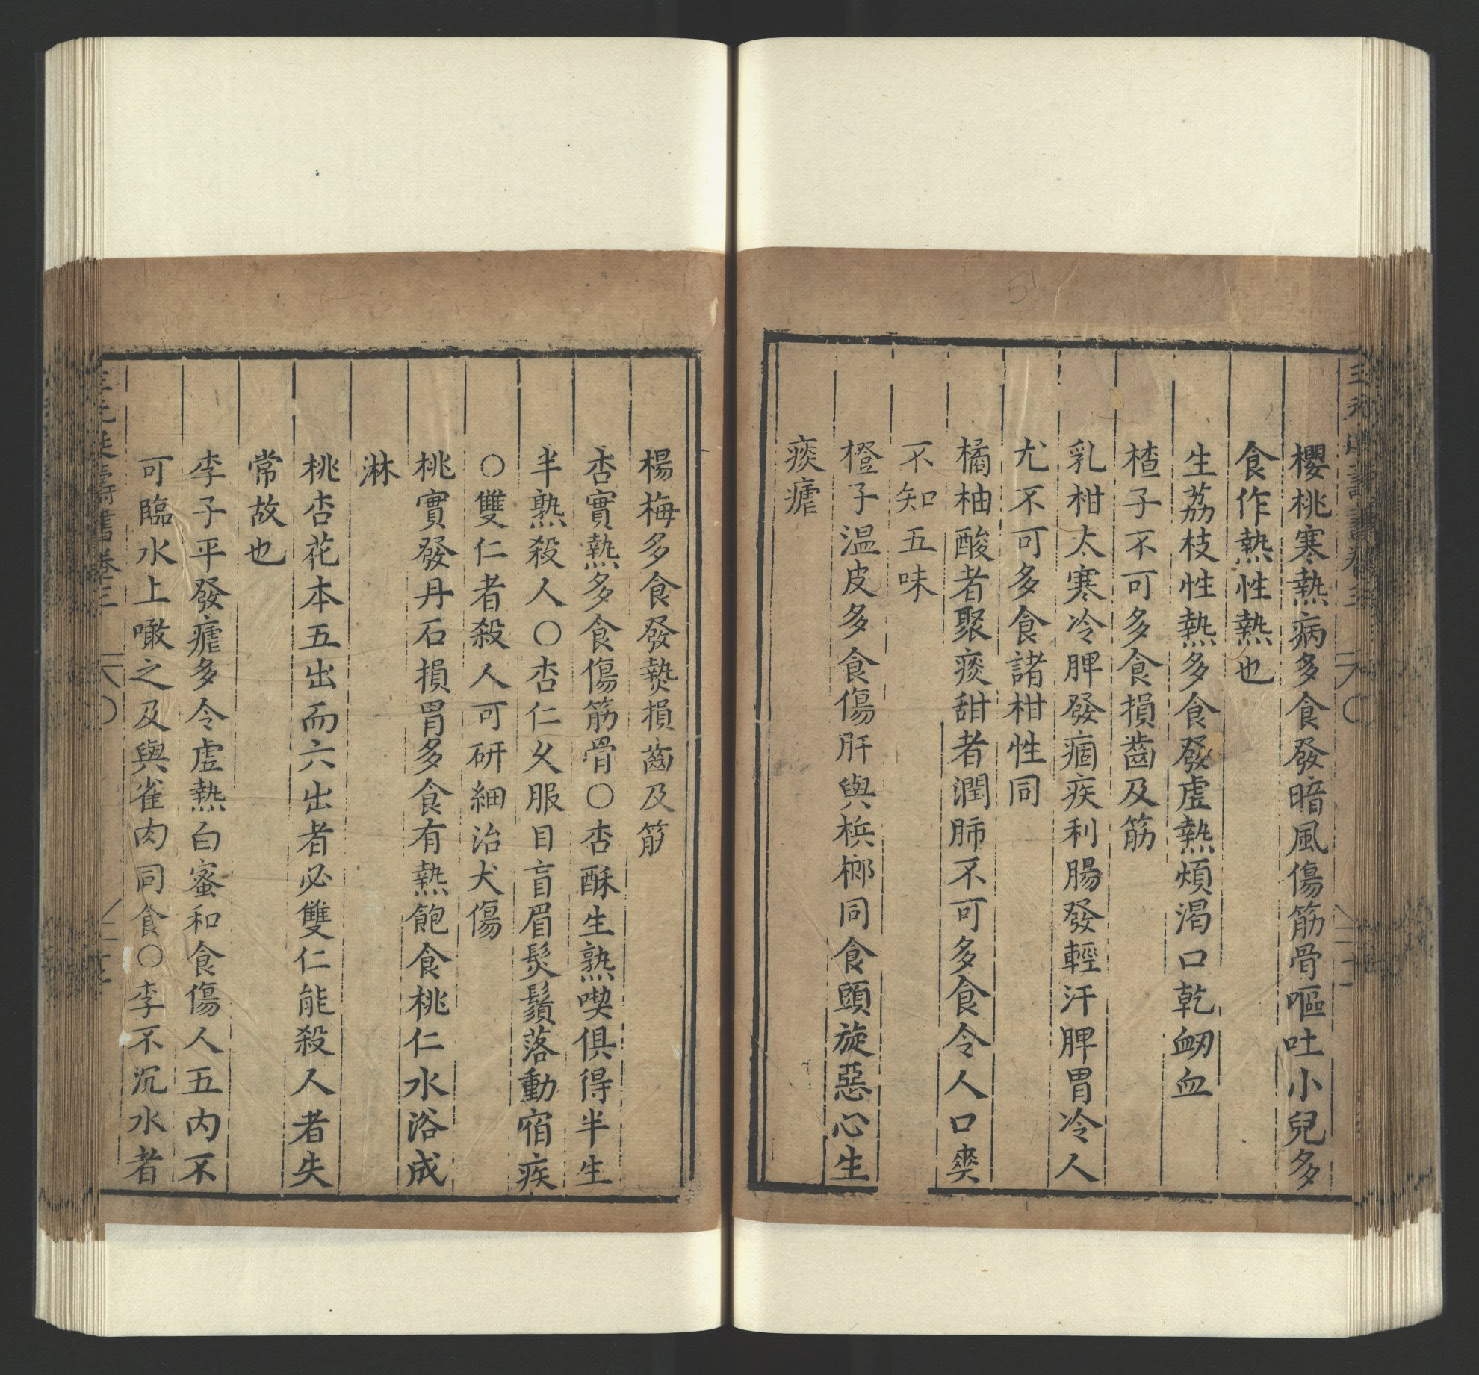 櫻桃寒熱病多食發暗風傷筋骨嘔吐小兒多
食作熱性熱也
生荔枝性熱多食發虛熱煩渴口乾衂血
楂子不可多食損齒及筋
乳柑大寒冷脾發痼疾利腸發輕汗脾胃冷人
尤不可多食諸柑性同
橘柚酸者聚痰甜者潤肺不可多食令人口爽
不知五味
橙子溫皮多食傷肝與檳榔同食頭旋惡心生
痰瘧
楊梅多食發熱損齒及筋
杏實熱多食傷筋骨〇杏酥生熟喫俱得半生
半熟殺人〇杏仁乆服目盲眉髮鬚落動宿疾
〇雙仁者殺人可研細治犬傷
桃實發丹石損胃多食有熱飽食桃仁水浴成
淋
桃杏花本五出而六出者必雙仁能殺人者失
常故也
李子平發瘧多令虛熱白蜜和食傷人五内不
可臨水上噉之及與雀肉同食〇李不沉水者